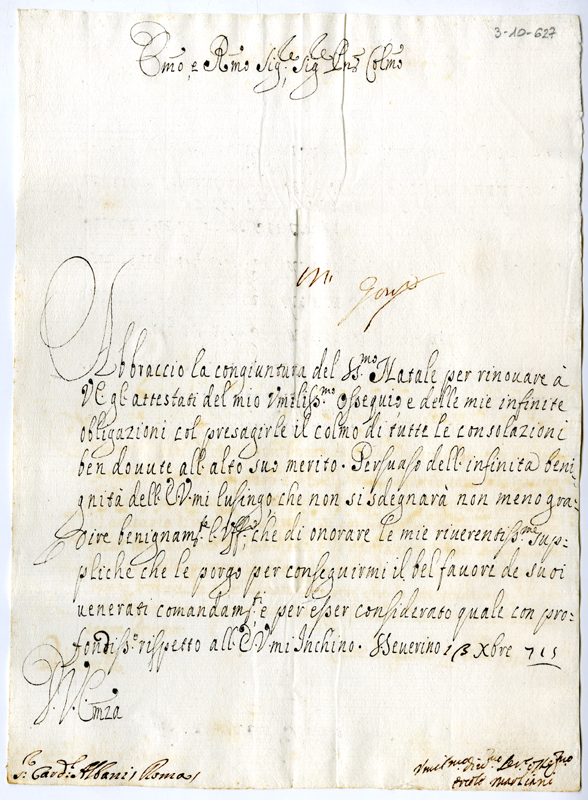 3-10-627
Emo, e Rmo Sig.re, Sig.re Pne Colmo
Abbraccio la congiuntura del SS.mo Natale per rinouare à
VE gl'attestati del mio Vmiliss.mo Ossequio e delle mie infinite
obligazioni col presagirle il colmo di tutte le consolazioni
ben douute all'alto suo merito. Persuaso dell'infinita beni
gnità dell'E.V. mi lusingo, che non si sdegnarà non meno gra-
dire benignam.te l'Uff.o, che di onorare le mie riuerentiss.me sup-
pliche che le porgo per conseguirmi il bel fauore de suoi
venerati comandam.ti, e per esser considerato quale con pro-
fondiss.o rispetto all'E.V. mi Inchino. S. Seuerino 13 Xbre 715
V. E.mza
S.r Card.l Albani / Roma /